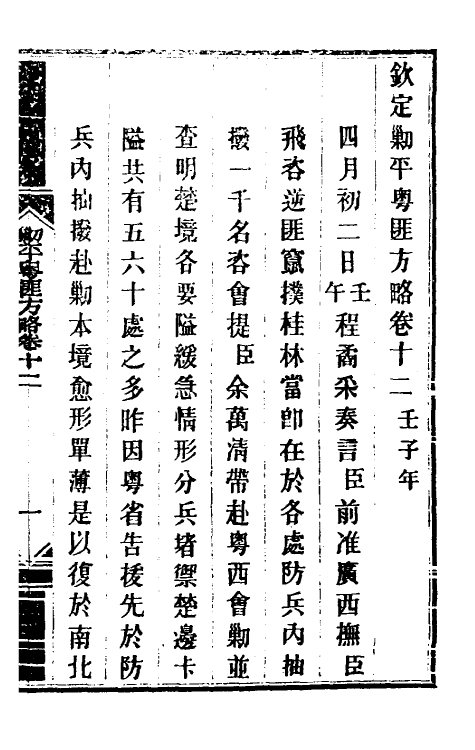 欽定勦平粵匪方略卷十二 壬子年
四月初二日壬午程矞采奏言臣前准廣西撫臣
飛咨逆匪竄撲桂林當卽在於各處防兵內抽
撥一千名咨會提臣余萬清帶赴粵西會勦並
查明楚境各要隘緩急情形分兵堵禦楚邊卡
隘共有五六十處之多昨因粵省告援先於防
兵內抽撥赴勦本境愈形單薄是以復於南北
勦平粵匪方略卷十二 一